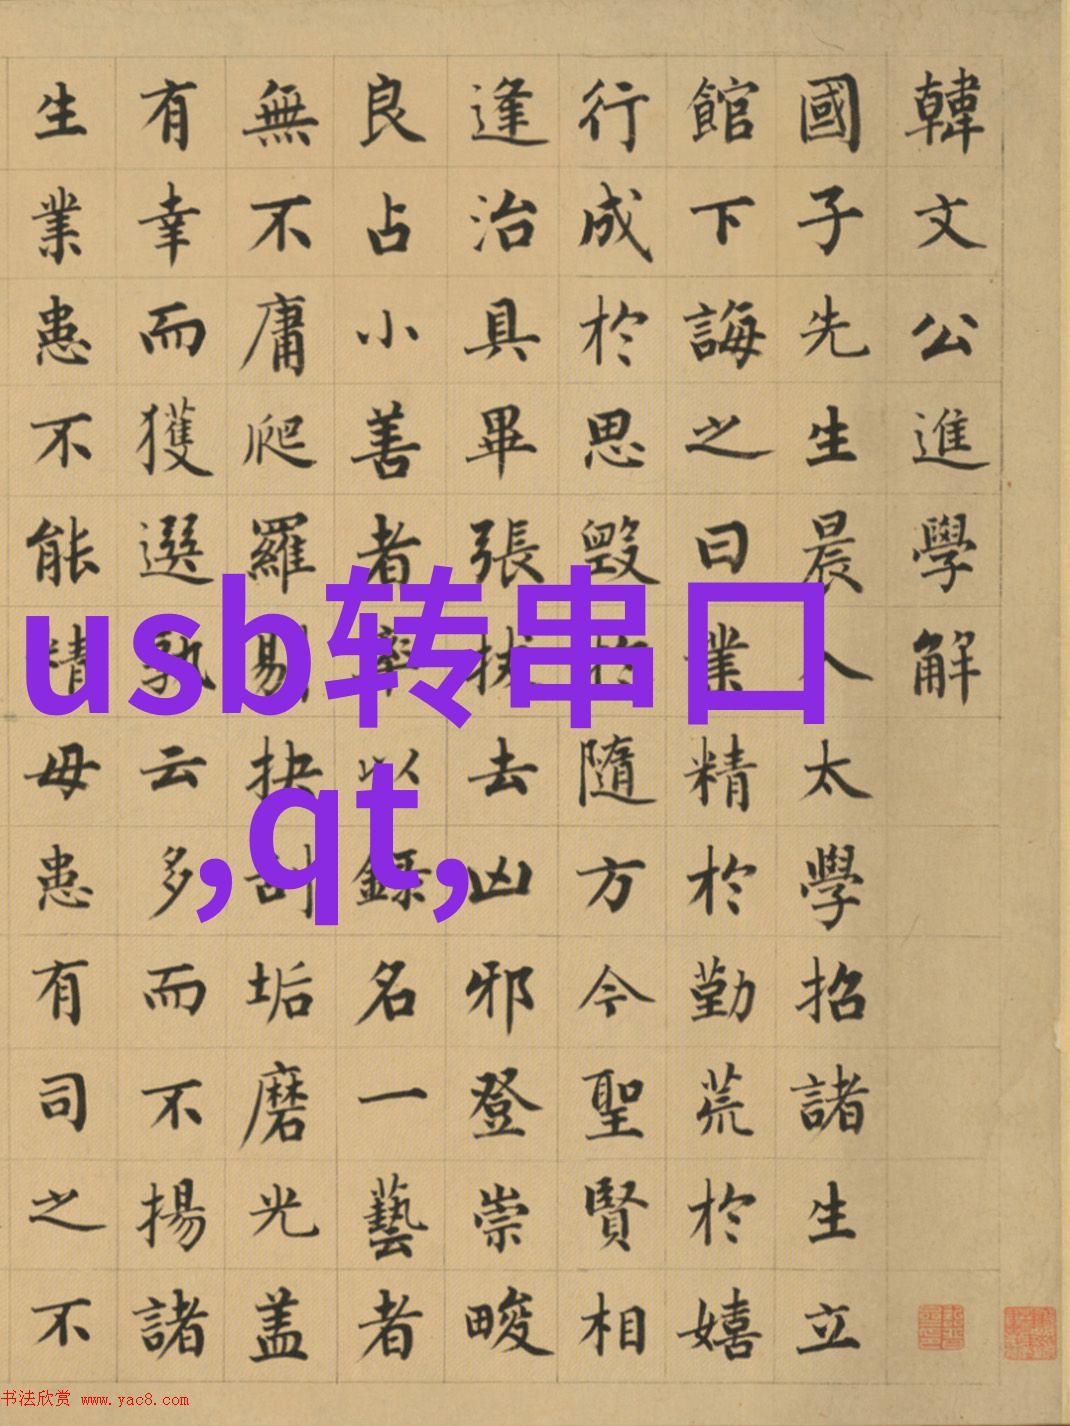 韓文公進學解
國子先生晨入太學招諸生立
館下誨之曰業精於勤荒於嬉
行成於思毀於隨方今聖賢相
逢治具畢張拔去凶邪登崇畯
良占小善者率以錄名一藝者
無不庸爬羅剔抉刮垢磨光盖
有幸而獲選孰云多而不揚諸
生業患不能精毋患有司之不
usb转串口
,qt,
书法欣赏 www.yac8.com